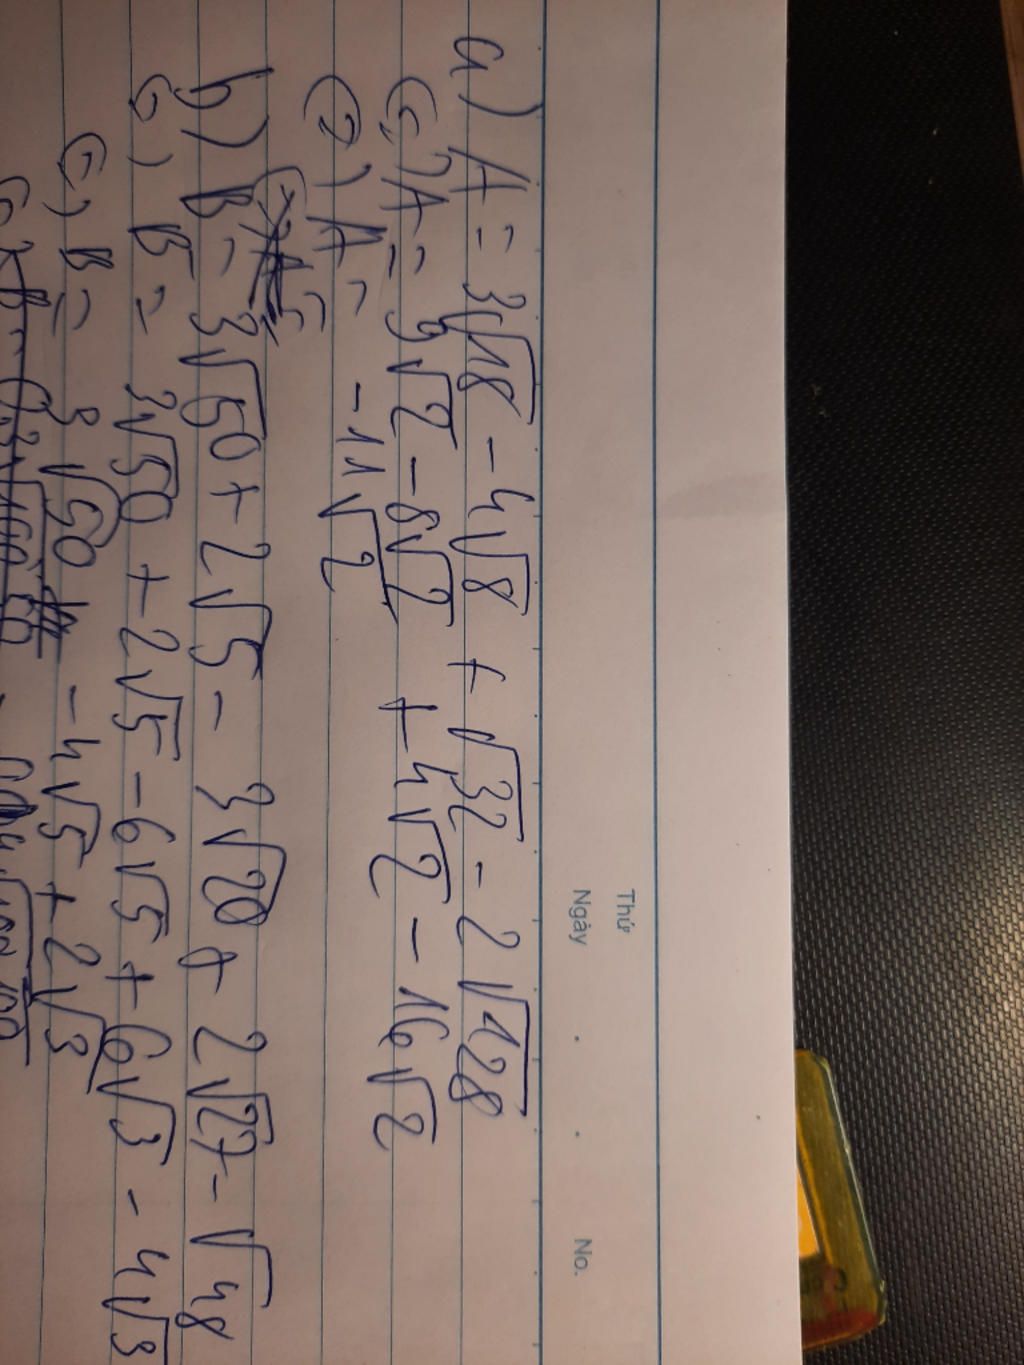 Thứ
Ngày . . No.
a) A = 3√18 - 4√8 + √32 - 2√128
(=) A = 9√2 - 8√2 + 4√2 - 16√2
(=) A = -11√2
b) B = 3√50 + 2√5 - 3√20 + 2√27 - √48
(=) B = 3√50 + 2√5 - 6√5 + 6√3 - 4√3
(=) B = 3√50 - 4√5 + 2√3